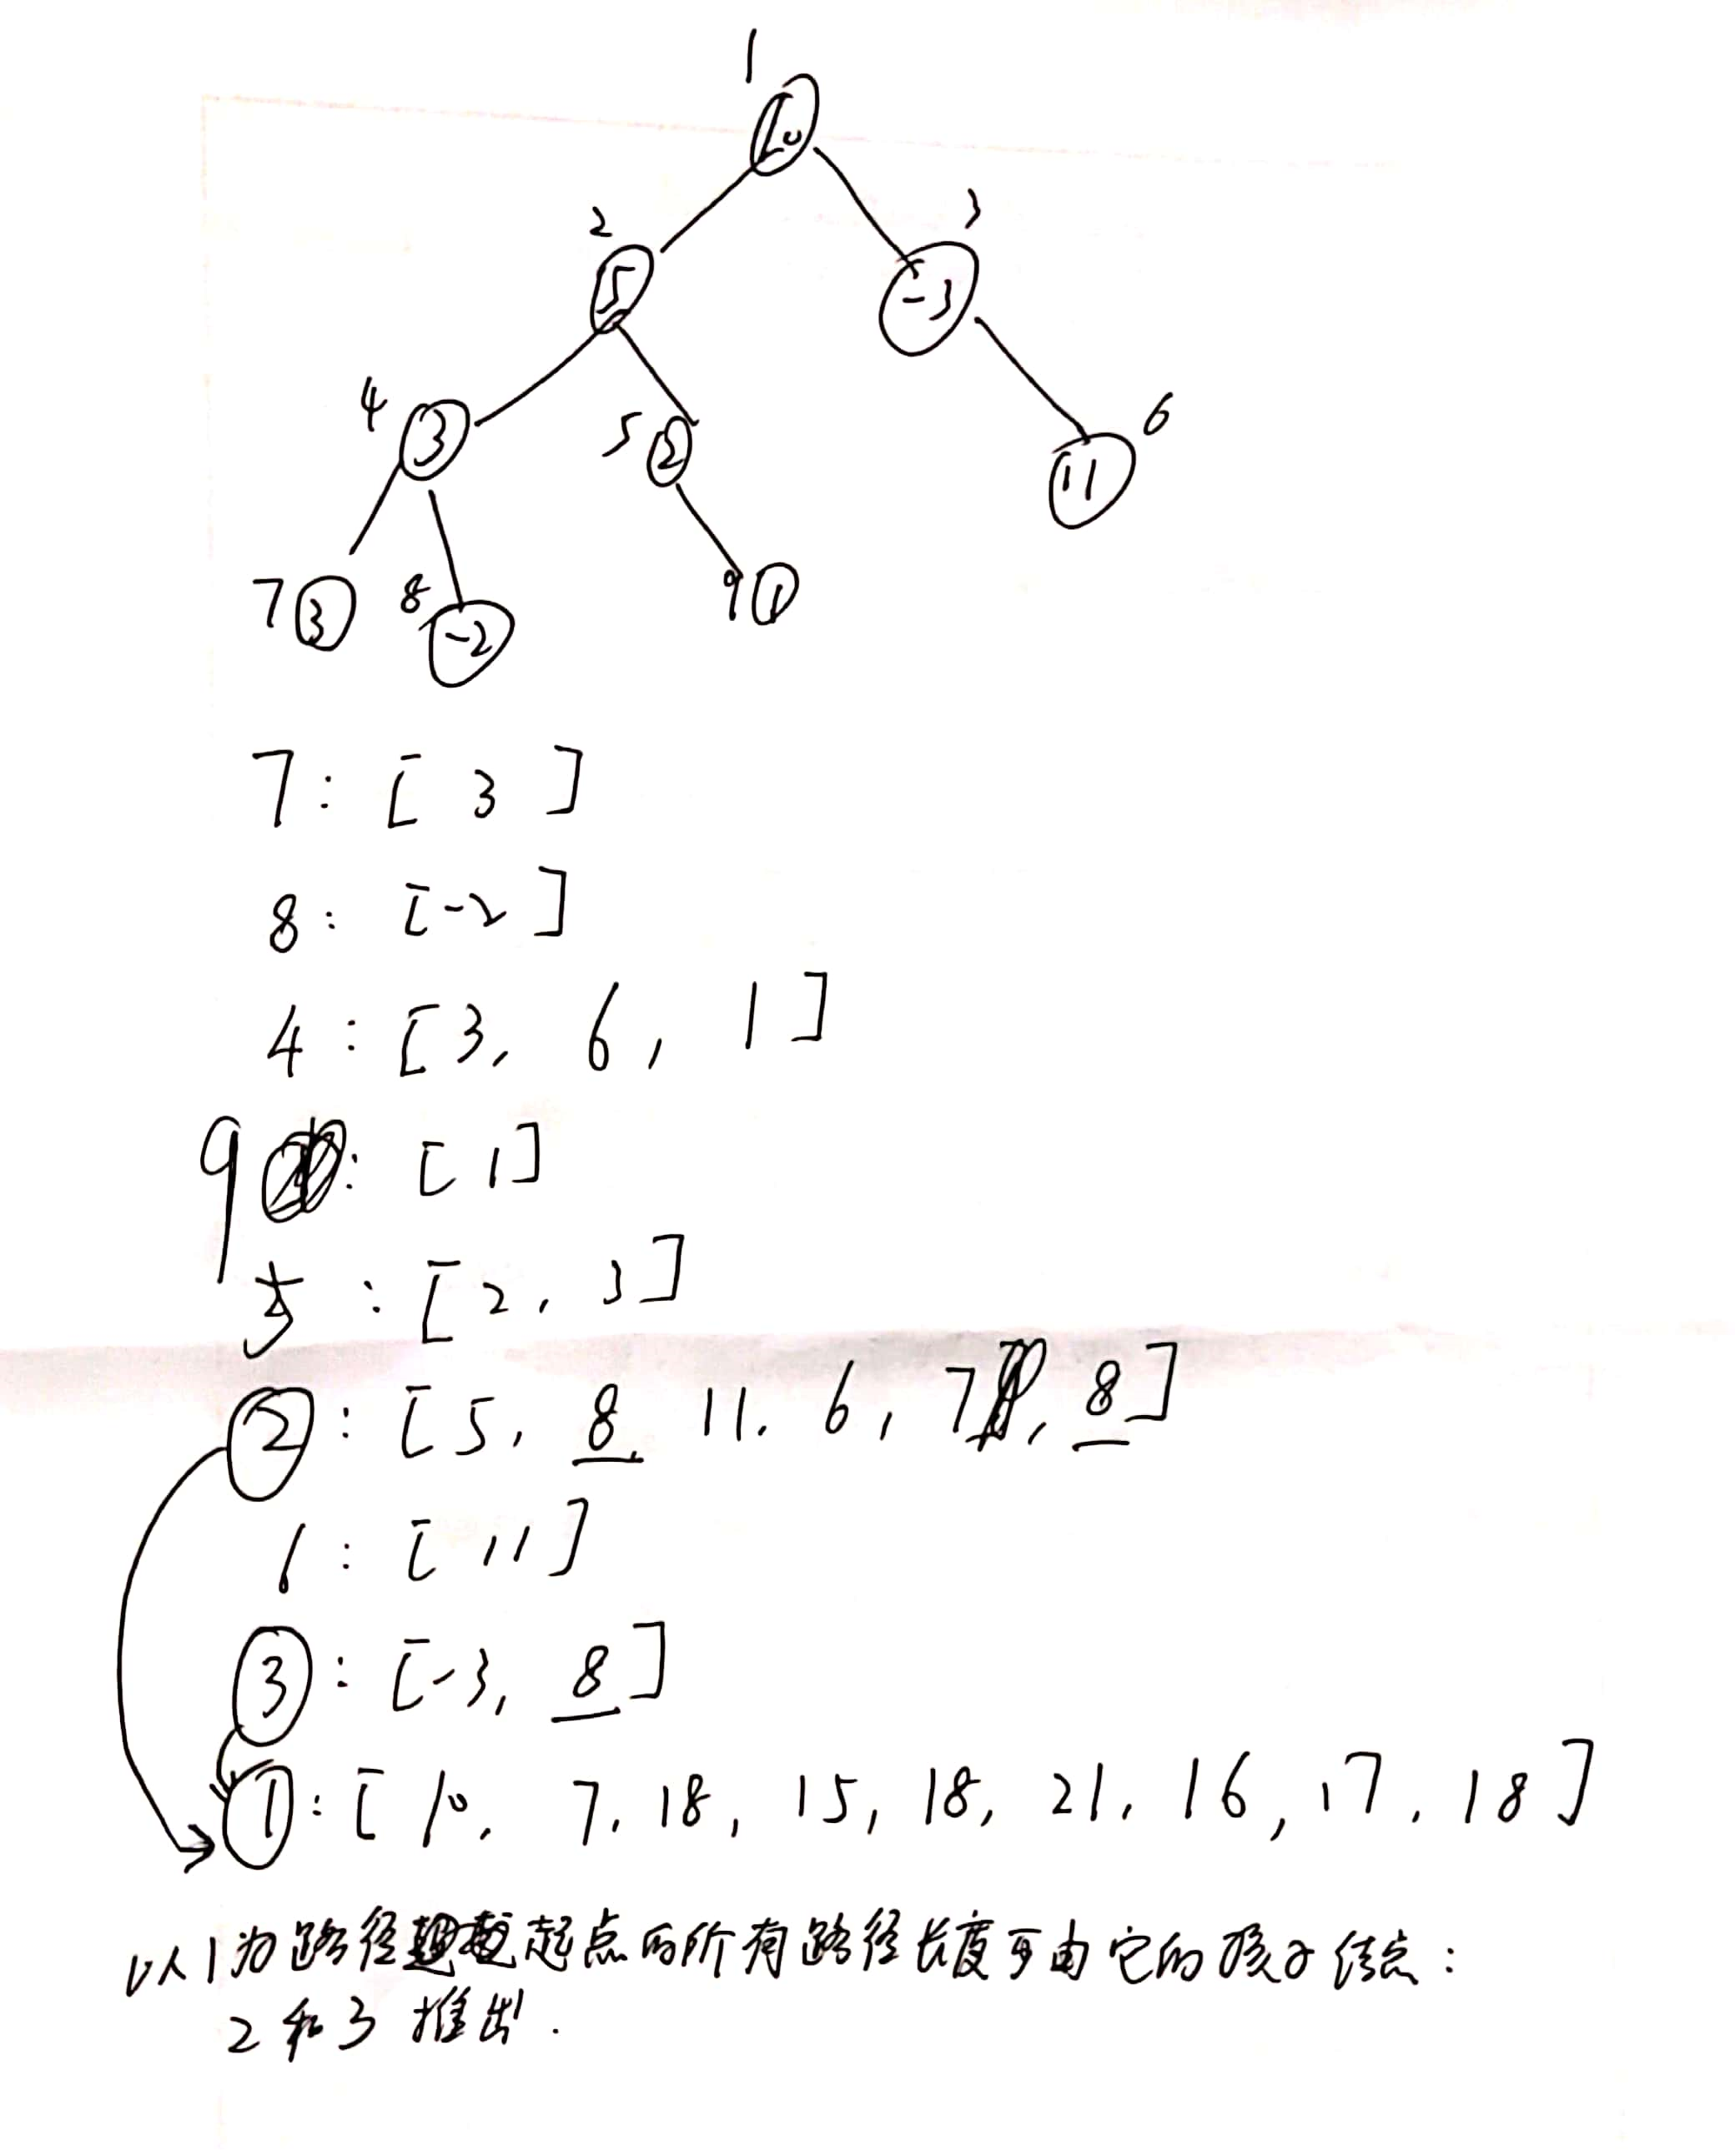 1
10
2
3
5
-3
4
3
5
2
6
11
7
3
8
-2
9
1
7: [ 3 ]
8: [-2 ]
4: [3, 6, 1]
9: [1]
5: [2, 3]
②: [5, 8, 11, 6, 7, 8]
6: [11]
③: [-3, 8]
①: [10, 7, 18, 15, 18, 21, 16, 17, 18]
以1为路径起点的所有路径长度可由它的孩子结点:
2和3推出.